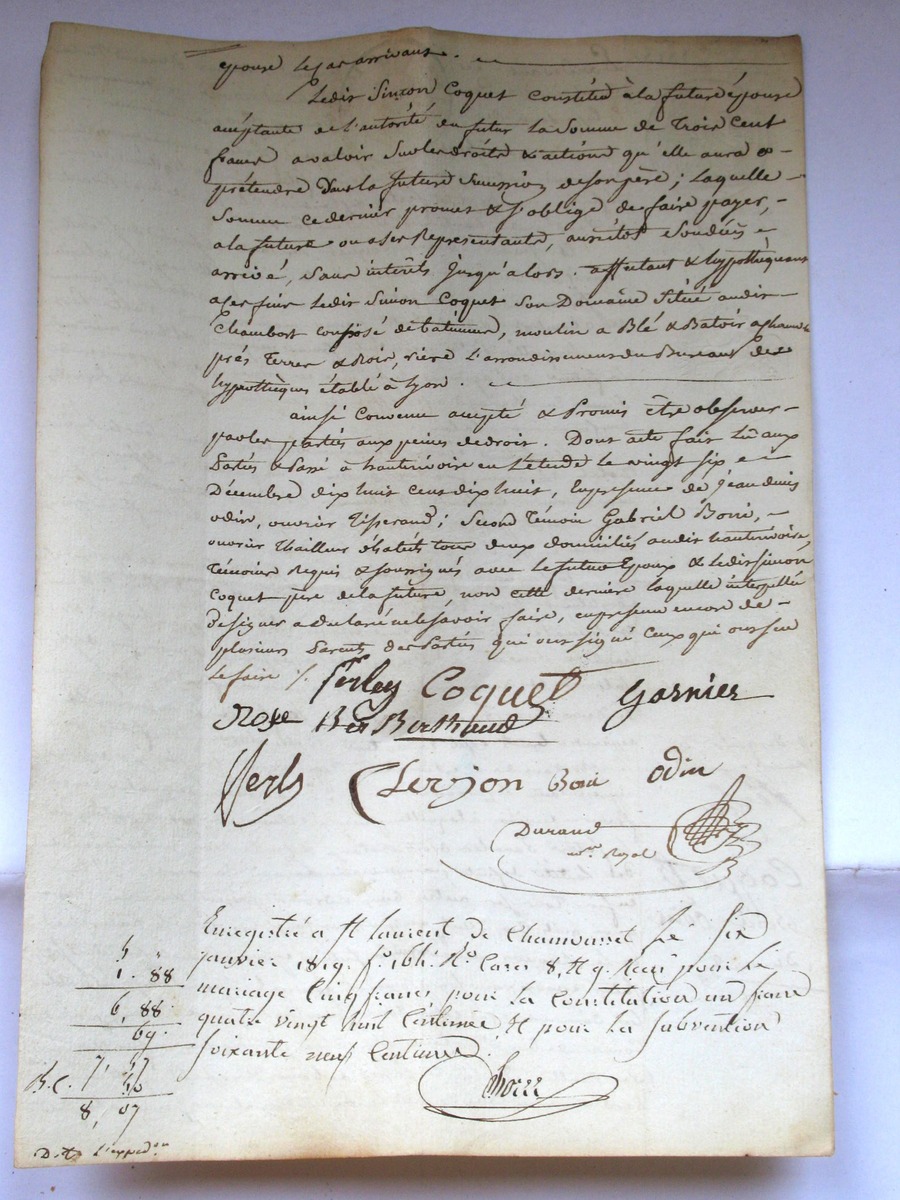 épouse le cas arrivant.
Ledit Simon Coquet Constitue à la future épouse
acceptante de l'autorité du futur la Somme de Trois Cent
francs a valoir Sur les droits & actions qu'elle aura a
prétendre dans la future Succession de son père ; laquelle
Somme ce dernier promet & s'oblige de faire payer,
a la future ou a ses Représentants, aussitôt Son décès
arrivé, Sans intérêts jusqu'alors. affectant & hypothéquant
a ses fins Ledit Simon Coquet Son Domaine Situé audit
Chambort composé de batiment, moulin a Blé & Batoir a chanvre
prés Terres & Bois, rière L'arrondissement du Bureau des
hypothèques établi à Lyon.
ainsi Convenu accepté & Promis être observer
par les parties aux peines de droit. Dont acte fait lu aux
Parties & Passé à hauterivoire en L'étude le vingt six
Décembre dix huit cent dix huit, En présence de Jean denis
odin, ouvrier Tisserand ; Second Témoin Gabriel Boni,
ouvrier Thailleur d'habits tous deux domiciliés audit hauterivoire,
Témoins Requis & soussignés avec le futur Epoux & ledit Simon
Coquet père de la future, non cette dernière laquelle interpellée
de signer a déclaré ne le savoir faire, en présence encore de
plusieurs Parents des Parties qui ont signé Ceux qui ont su
Le faire /.
Coquet Garnier
Roze Berthaud
Clerjon Boni odin
Durand
nre Royal
Enregistré a St Laurent de Chamousset Le Six
janvier 1819. fo. 164. Ro. Cases 8, & 9. Reçu pour le
mariage Cinq francs, pour la Constitution un franc
quatre vingt huit Centimes, & pour la Subvention
soixante neuf Centimes.
5 "
1. 88
6, 88
69
7. 57
50
8, 07